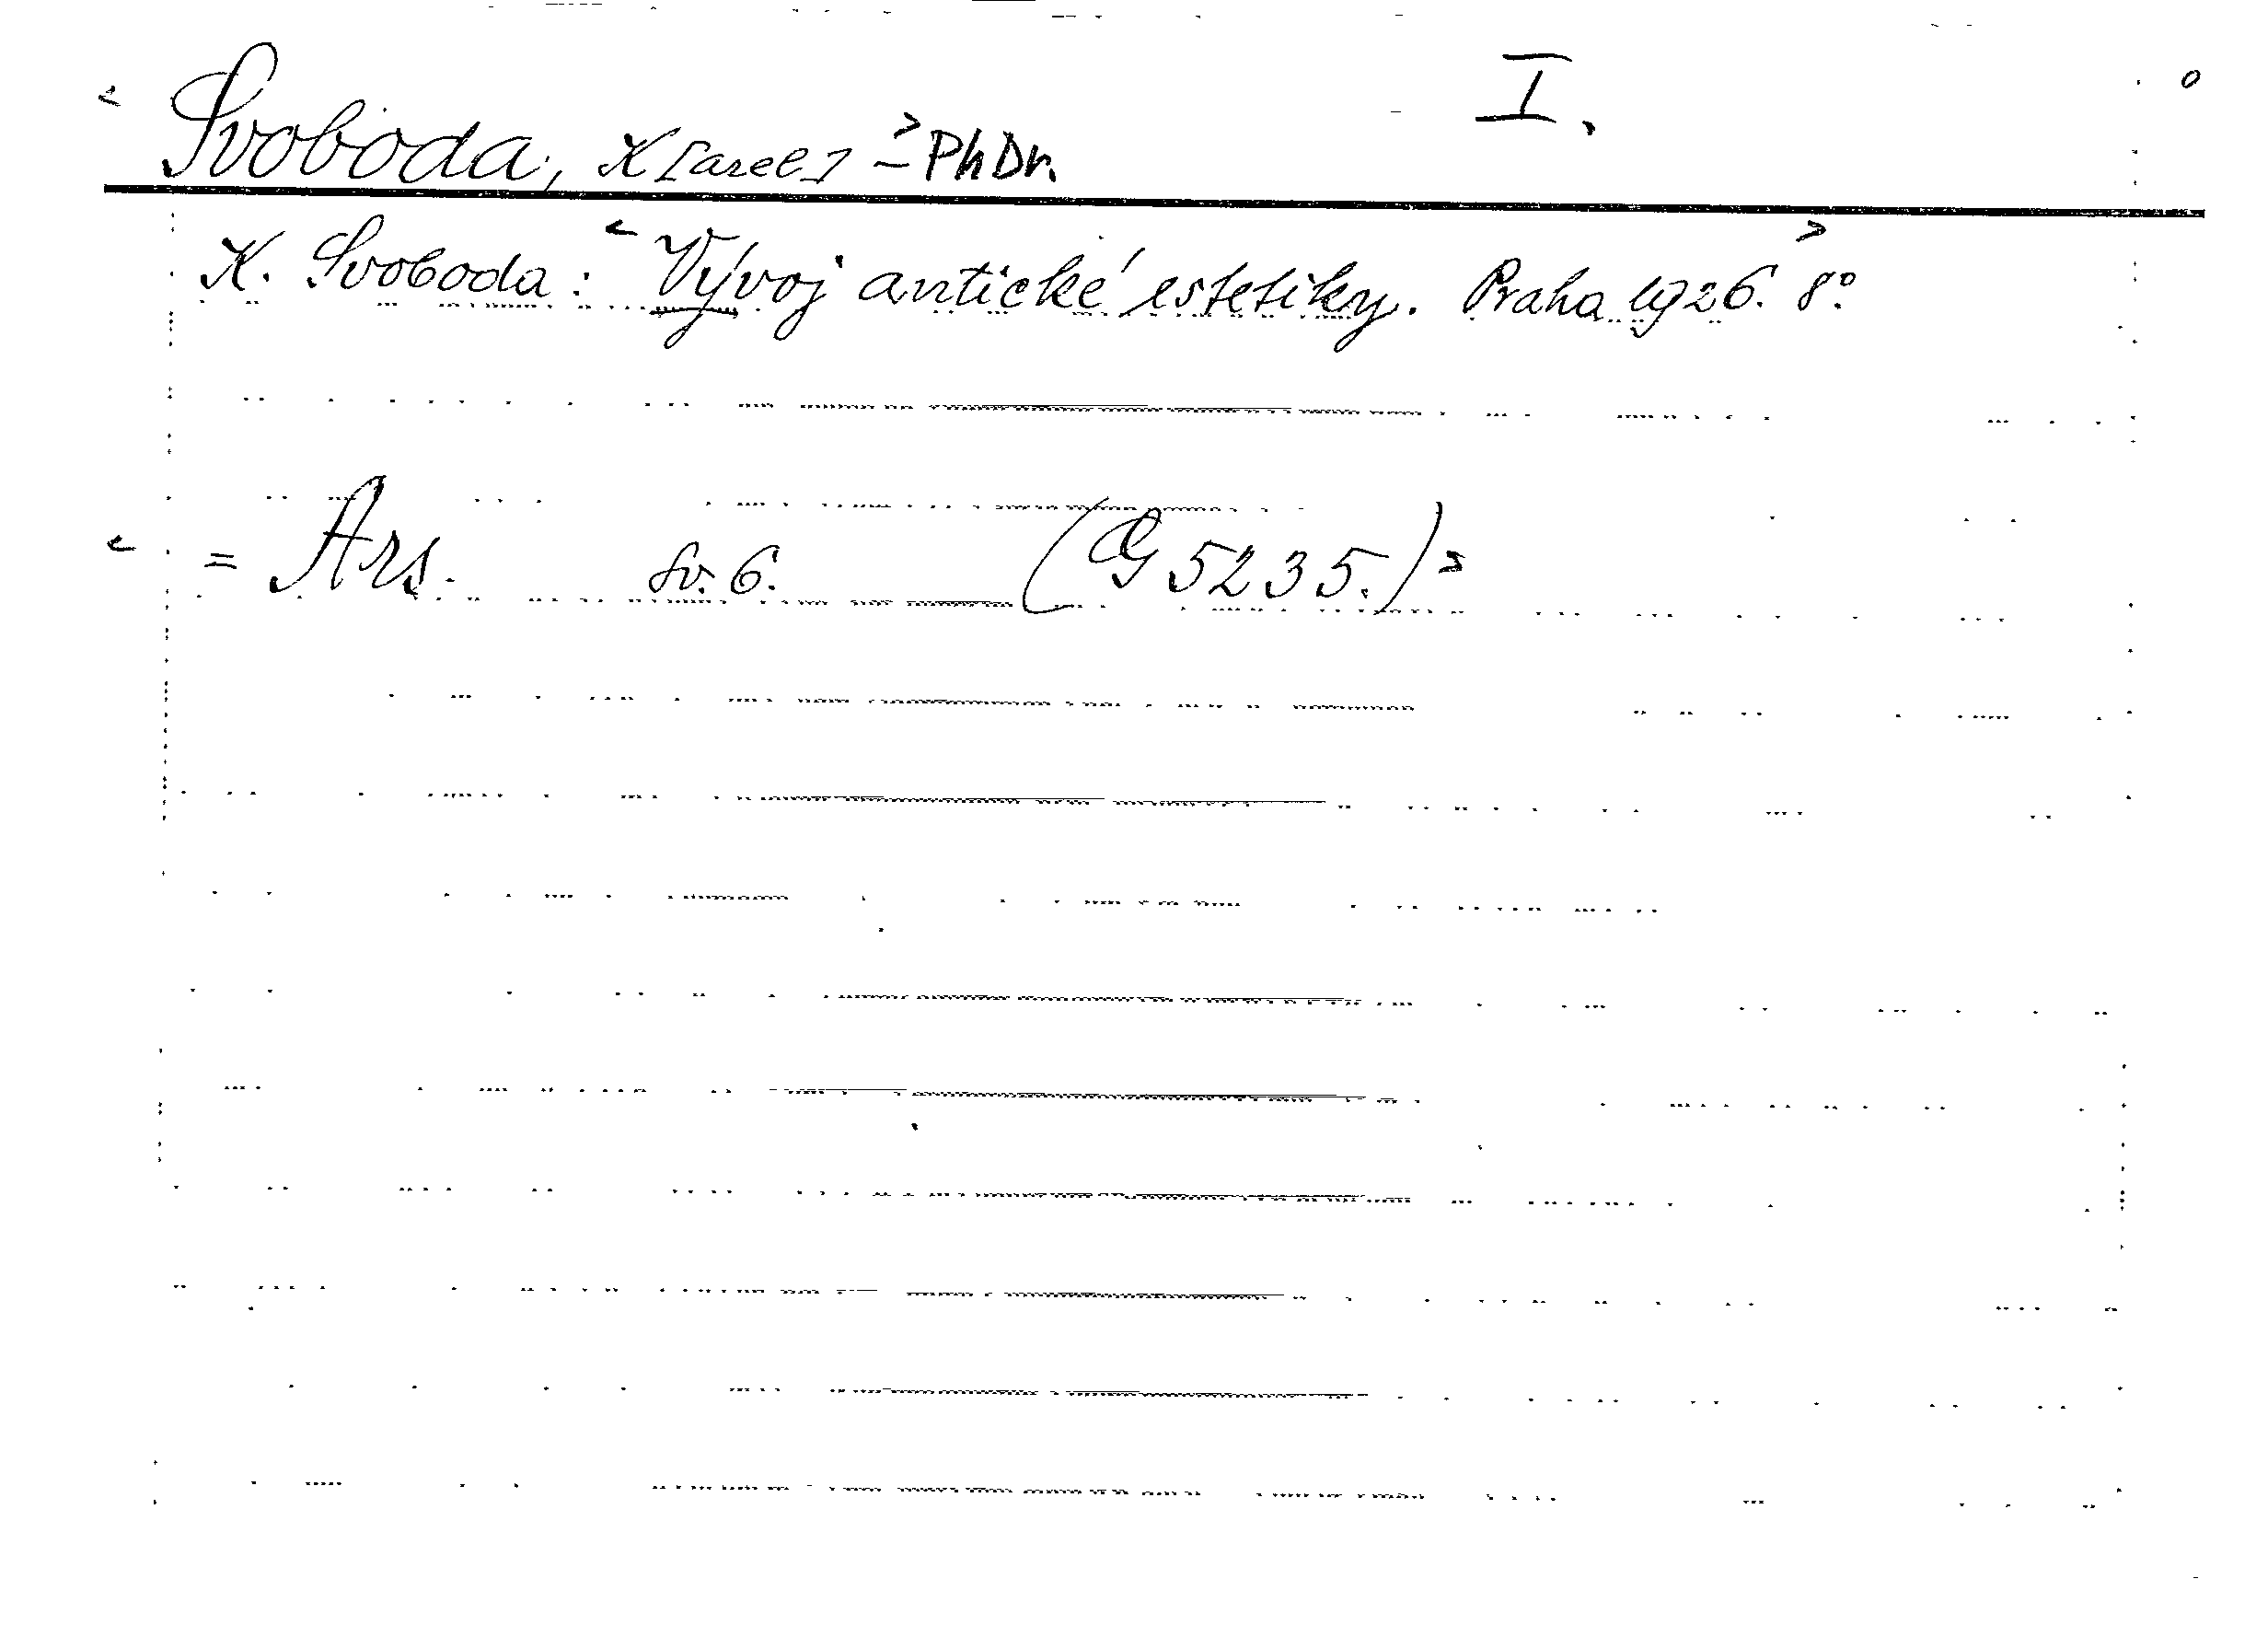 I.
< Svoboda, K[arel] > - PhDr.
K. Svoboda: < Vývoj antické estetiky. Praha 1926. 8° >
< = Ars. Sv. 6. (G 5235.) >